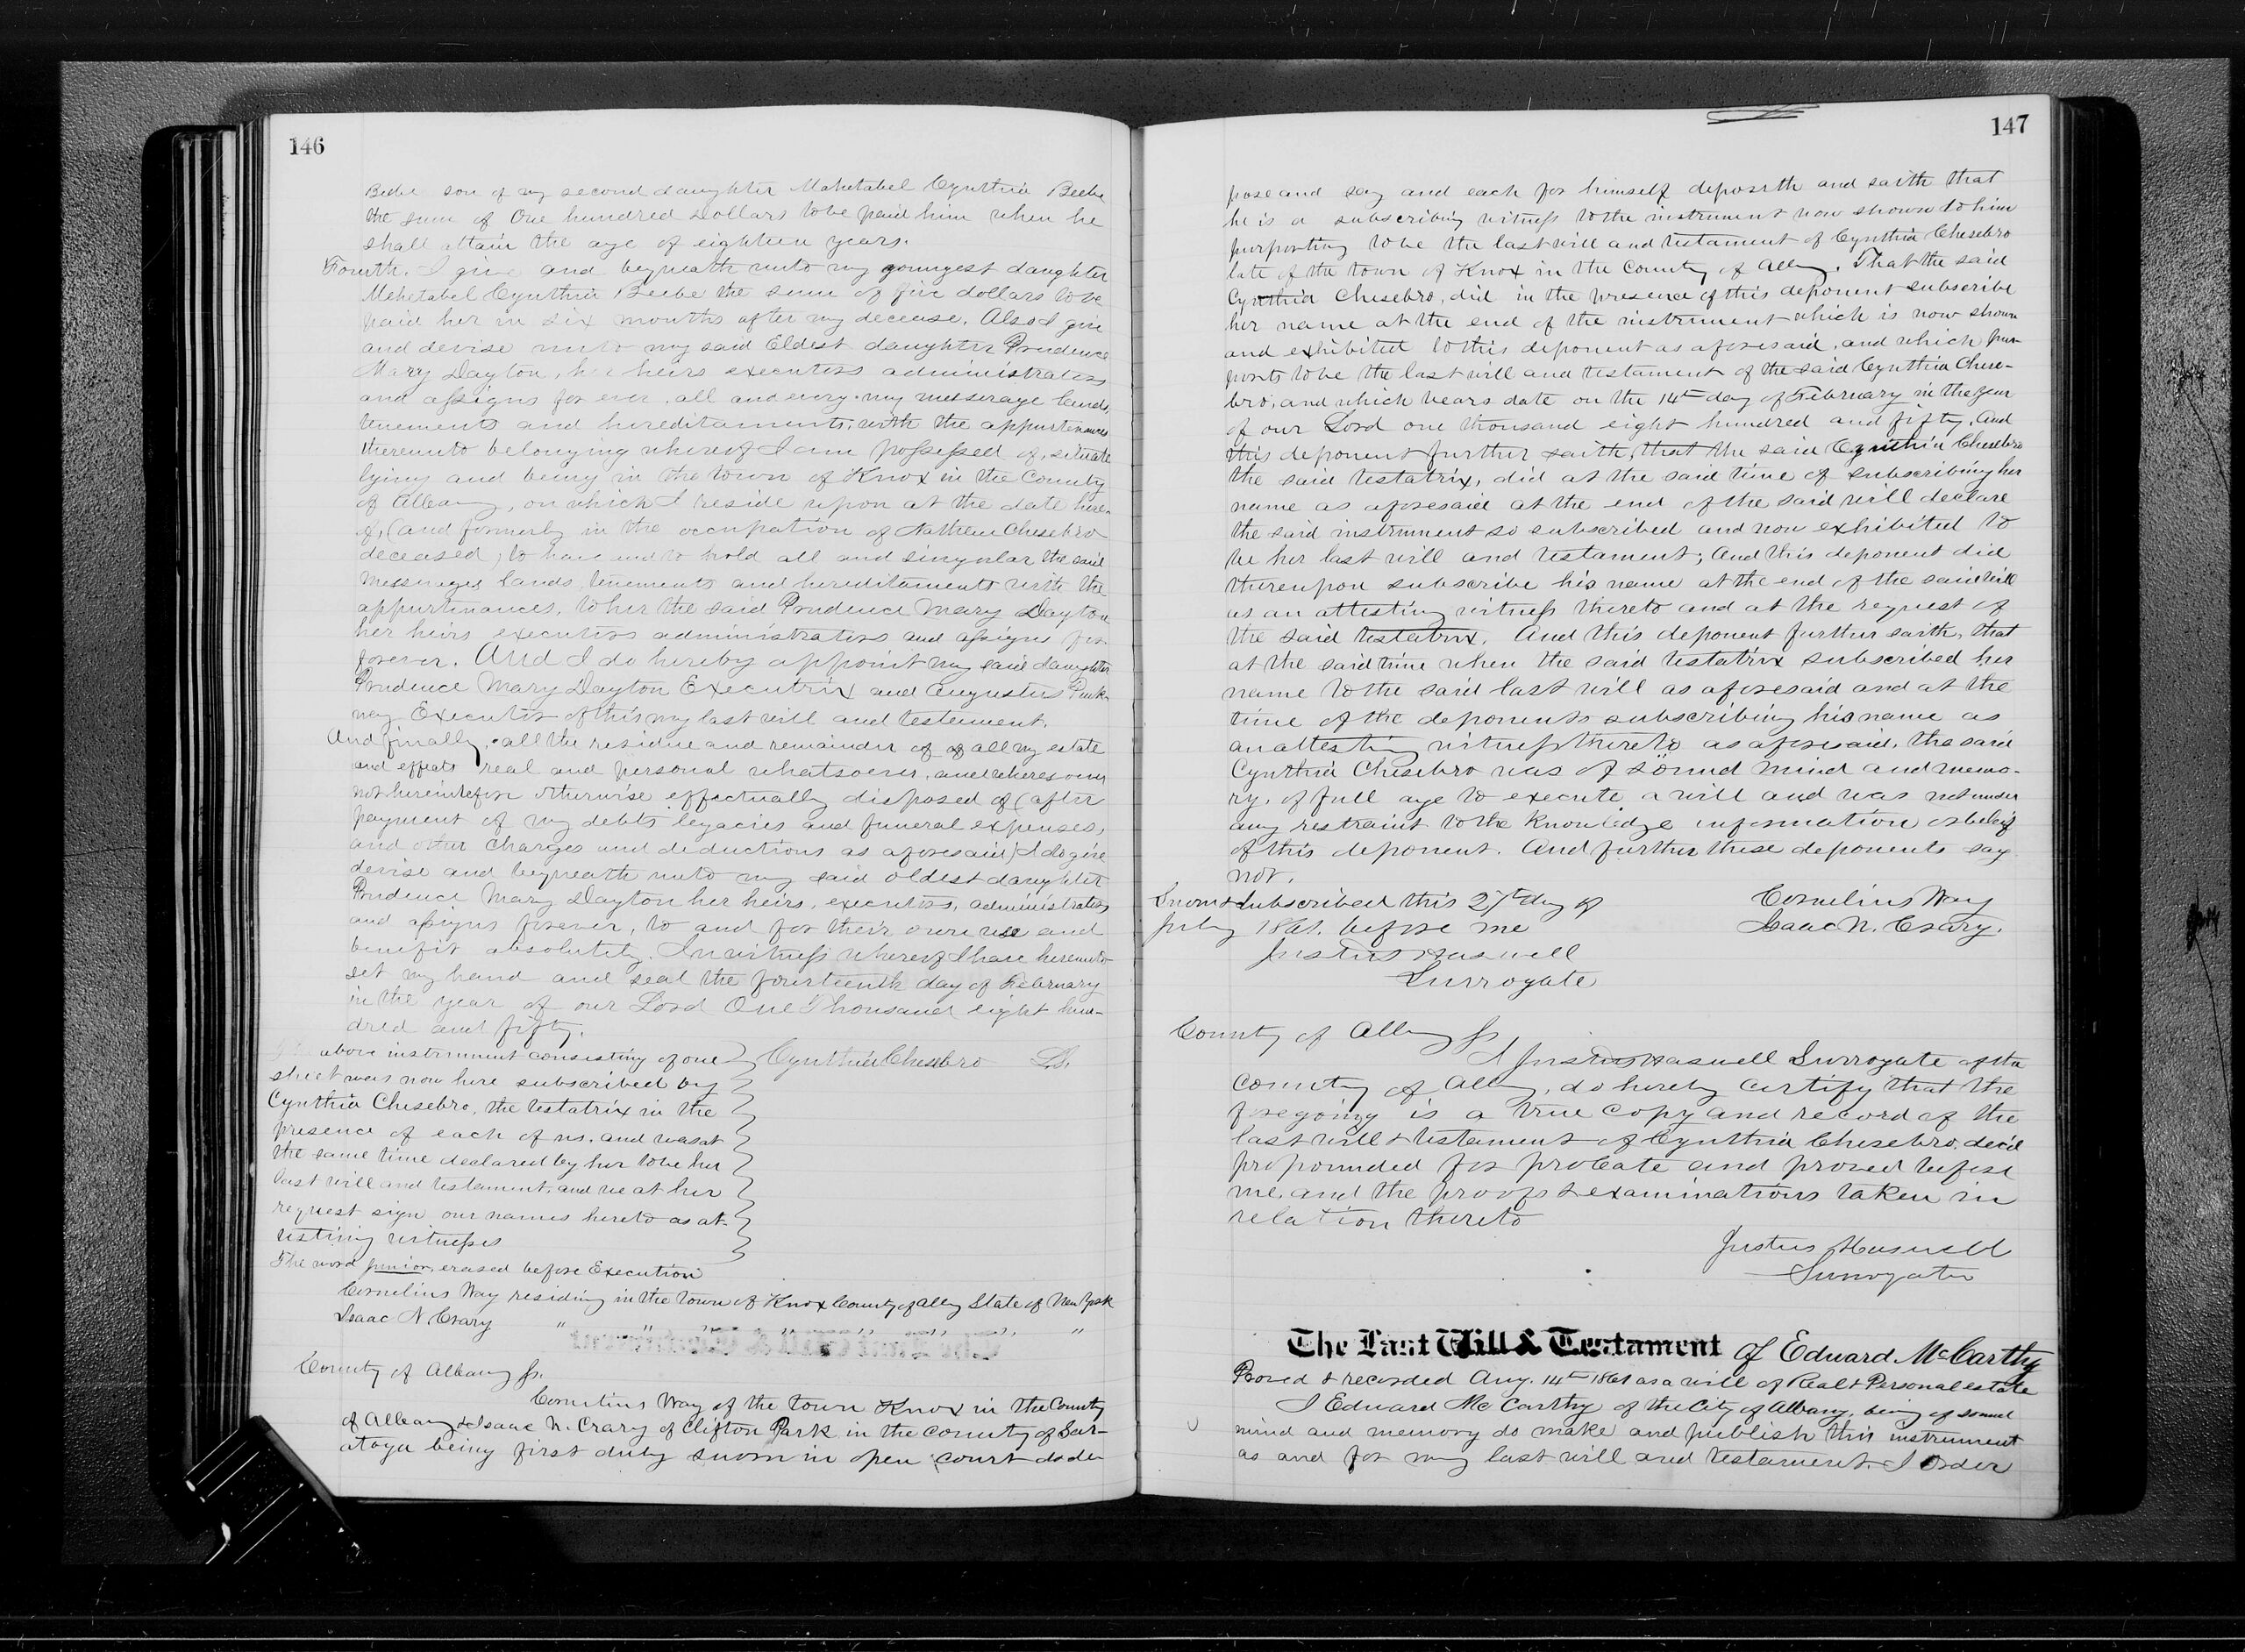 146
Beebe son of my second daughter Mehetabel Cynthia Beebe
the sum of One hundred Dollars to be paid him when he
shall attain the age of eighteen years.
Fourth. I give and beqneath unto my youngest daughter
Mehetabel Cynthia Beebe the sum of five dollars to be
paid her in six months after my decease. Also I give
and devise unto my said Eldest daughter Prudence
Mary Dayton, her heirs executors administrators
and assigns for ever, all and every my messerage lands,
tenements and hereditaments, with the appurtenances
thereunto belonging whereof I am possessed of, situate
lying and being in the town of Knox in the County
of Albany, on which I reside upon at the date here-
of, (and formerly in the occupation of Nathen Chesebro
deceased) to have and to hold all and singular the said
messuages lands, tenements and hereditaments with the
appurtinances, to her the said Prudence Mary Dayton
her heirs executors administrators and assigns for
forever. And I do hereby appoint my said daughter
Prudence Mary Dayton Executrix and Augustus Pink-
ney Executor of this my last will and testament.
And finally, all the residue and remainder of of all my estate
and effects real and personal whatsoever, and wheresoever
not hereinbefore otherwise effectually disposed of (after
payment of my debts legacies and funeral expenses,
and other charges and deductions as aforesaid) I do give
devise and beqneath unto my said oldest daughter
Prudence Mary Dayton her heirs, executors, administrators
and assigns forever, to and for their own use and
benefit absolutely. In witness whereof I have hereunto
set my hand and seal the fourteenth day of February
in the year of our Lord One Thousand eight hun-
dred and fifty.
above instrument consisting of one } Cynthia Chesebro L.S.
sheet was now here subscribed by
Cynthia Chesebro, the testatrix in the
presence of each of us, and was at
the same time declared by her to be her
last will and testament, and we at her
request sign our names hereto as at-
testing witnesses
The word junior, erased before Execution
Cornelius Way residing in the town of Knox County of Alby State of New York
Isaac N. Crary " " " " " " " "
County of Albany Ss.
Cornelius Way of the town Knox in the County
of Albany & Isaac N. Crary of Clifton Park in the county of Sar-
atoga being first duly sworn in open court do de-
147
pose and say and each for himself deposeth and saith that
he is a subscribing witness to the instrument now shown to him
purporting to be the last will and testament of Cynthia Chesebro
late of the town of Knox in the County of Alby. That the said
Cynthia Chesebro, did in the presence of this deponent subscribe
her name at the end of the instrument which is now shown
and exhibited to this deponent as aforesaid, and which pur-
ports to be the last will and testament of the said Cynthia Chese-
bro, and which bears date on the 14th day of February in the year
of our Lord one thousand eight hundred and fifty. And
this deponent further saith, that the said Cynthia Chesebro
the said testatrix, did at the said time of subscribing her
name as aforesaid at the end of the said will declare
the said instrument so subscribed and now exhibited to
be her last will and testament; And this deponent did
thereupon subscribe his name at the end of the said will
as an attesting witness thereto and at the request of
the said testatrix. And this deponent further saith, that
at the said time when the said testatrix subscribed her
name to the said last will as aforesaid and at the
time of the deponents subscribing his name as
an attesting witness thereto as aforesaid, the said
Cynthia Chesebro was of sound mind and memo-
ry, of full age to execute a will and was not under
any restraint to the knowledge information or belief
of this deponent. And further these deponents say
not.
Sworn & Subscribed this 27th day of Cornelius Way
July 1861. before me Isaac N. Crary.
Justus Haswell
Surrogate
County of Alby Ss
I Justus Haswell Surrogate of the
County of Alby, do hereby certify that the
foregoing is a true copy and record of the
last will & testament of Cynthia Chesebro, dec'd
propounded for probate and proved before
me, and the proofs & examinations taken in
relation thereto
Justus Haswell
Surrogate
The Last Will & Testament Of Edward McCarthy
Proved & recorded Aug. 14th 1861 as a will of Real & Personal estate
I Edward McCarthy of the City of Albany, being of sound
mind and memory do make and publish this instrument
as and for my last will and testament. I Order